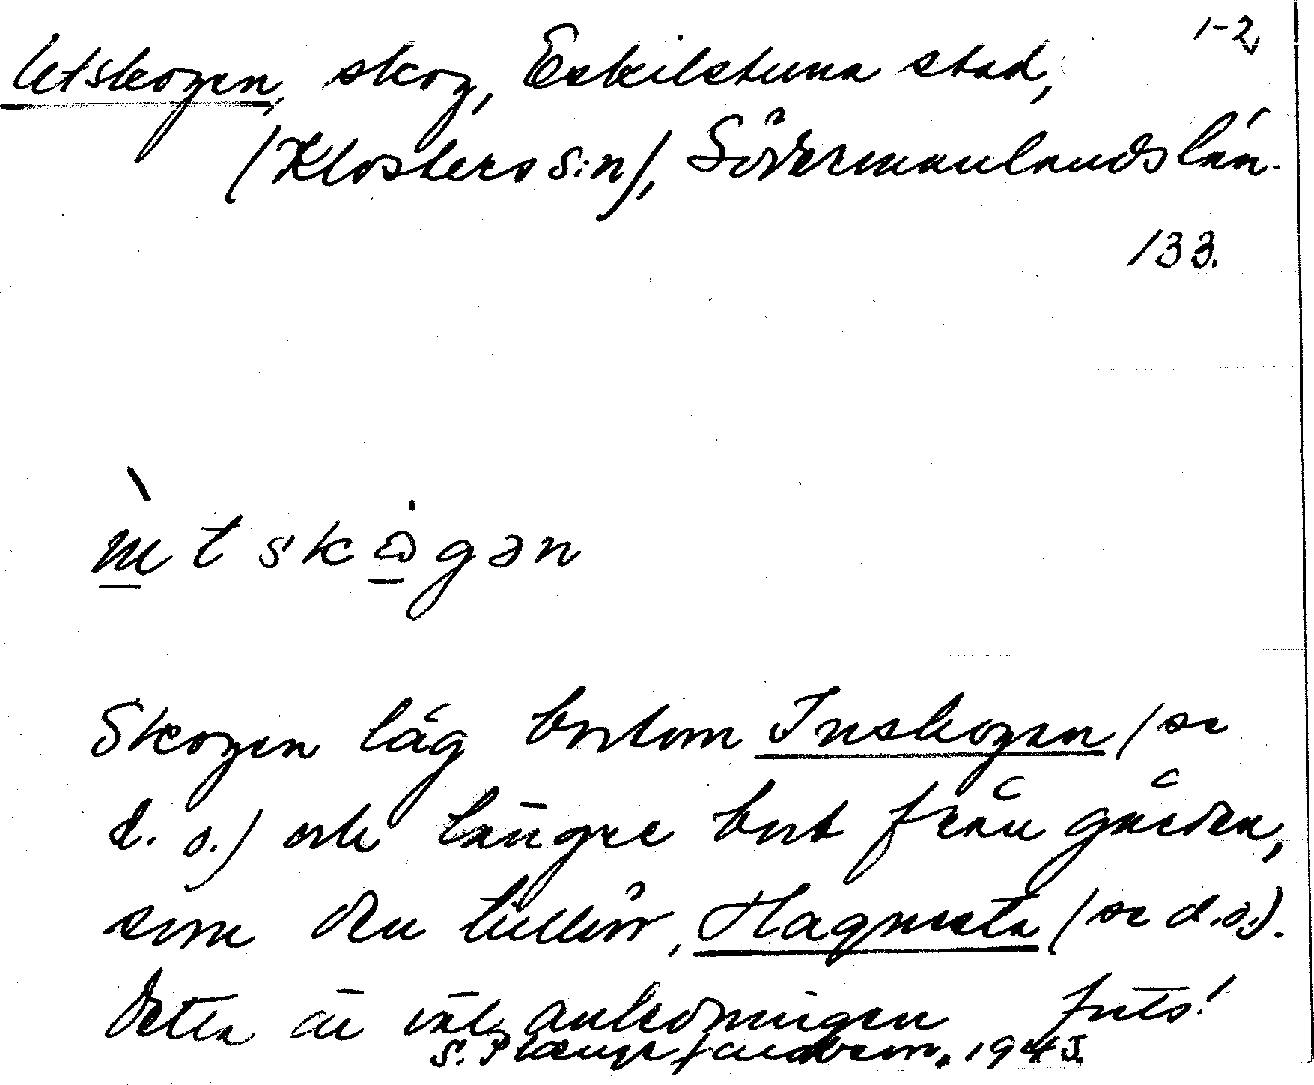 1-2
Utskogen, skog, Eskilstuna stad,
(Klosters s:n), Södermanlands län.
133.
ùtskȯgən
Skogen låg bortom Inskogen (se
d. o.) och längre bort från gården,
som den tillhör, Hagnesta (se d.o.).
Detta är väl anledningen
S. 1945.